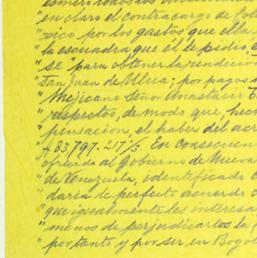 en claro el contracargo de Col
xico por los gastos que ella
la escuadra que él le pidió, e
se para obtener la rendición
San Juan de Ulúa; por pagos
Mejicano Señor Anastacio
respectos, de modo que, hech
pensación, el haber del acr
$83,797.21 7/5. En consecuen
ofrecido al Gobierno de Nueva
de Venezuela, identificado
daria de perfecto acuerdo
que igualmente les interesa
menos de perjudicarlos la
por tanto y por ser en Bogot